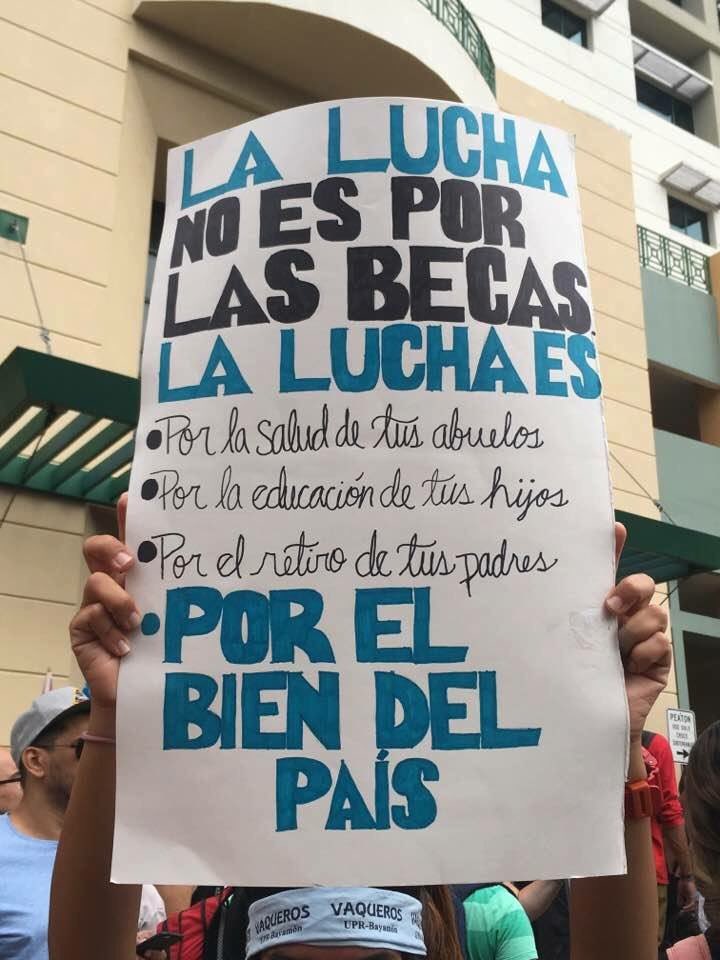 LA LUCHA
NO ES POR
LAS BECAS.
LA LUCHA ES
•Por la salud de tus abuelos
•Por la educación de tus hijos
•Por el retiro de tus padres
•POR EL
BIEN DEL
PAÍS
PEATON
VAQUEROS VAQUEROS
UPR-Bayamón UPR-Bayamón